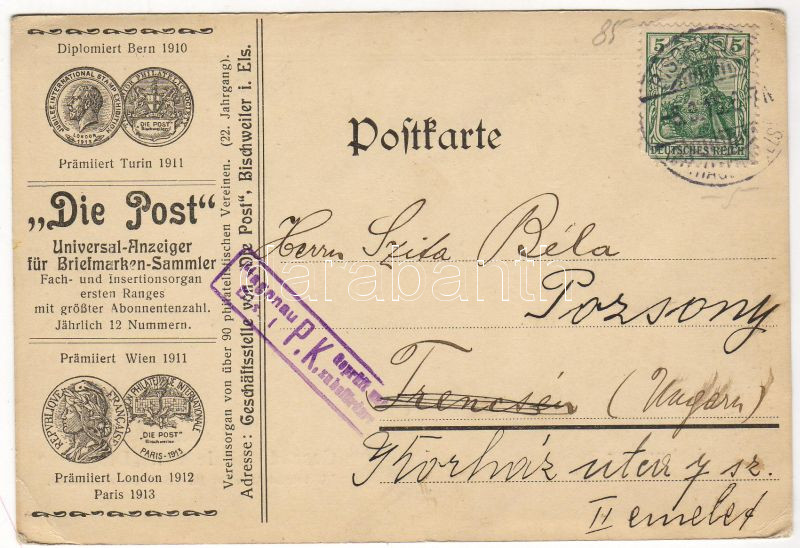 Diplomiert Bern 1910
JUBILEE INTERNATIONAL STAMP EXHIBITION
LONDON
1912
"DIE POST"
Bischweiler
Prämiiert Turin 1911
„Die Post“
Universal-Anzeiger
für Briefmarken-Sammler
Fach- und Insertionsorgan
ersten Ranges
mit größter Abonnentenzahl.
Jährlich 12 Nummern.
Prämiiert Wien 1911
REPUBLIQUE FRANÇAISE
PHILATELIQUE INTERNATIONALE
"DIE POST"
Bischweiler
PARIS-1913
Prämiiert London 1912
Paris 1913
Vereinsorgan von über 90 philatelistischen Vereinen. (22. Jahrgang).
Adresse: Geschäftsstelle von „Die Post“, Bischweiler i. Els.
85
5 5
DEUTSCHES REICH
Postkarte
Herrn Szita Béla
Pozsony
Trencsén (Ungarn)
Kórház utca 7 sz.
II emelet
Hagenau
P.K.
Geprüft und
zu befördern
Darabanth